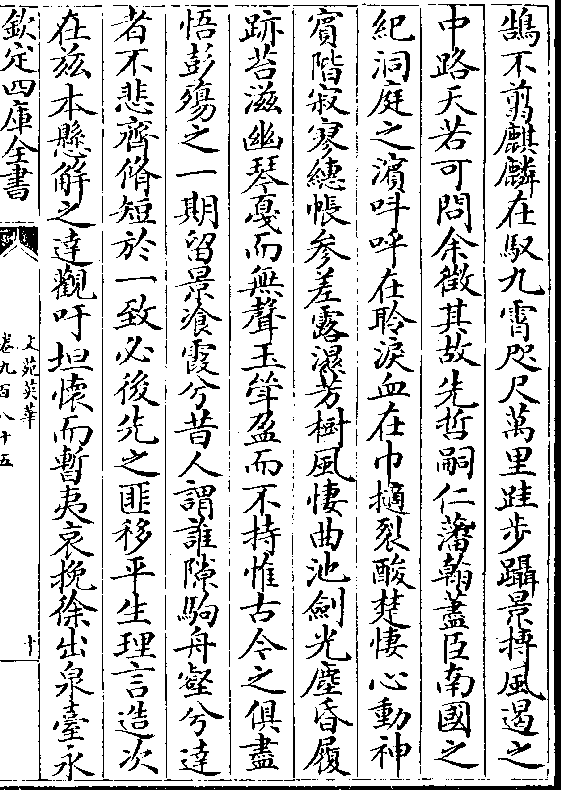 鵠不翦麒麟在馭九霄咫尺萬里跬步躡景摶風遏之
中路天若可問余徵其故先哲嗣仁藩翰藎臣南國之
紀洞庭之濱呌呼在聆淚血在巾擿裂酸楚悽心動神
賓階寂寥繐帳参差露濕芳樹風悽曲池劍光塵昏履
跡苔滋幽琴戞而無聲玉斝盈而不持惟古今之俱盡
悟彭殤之一期留景飡霞兮昔人謂誰隙駒舟壑兮達
者不悲齊脩短於一致必後先之匪移平生理言造次
在兹本懸解之達觀吁坦懷而暫夷哀挽徐出泉臺永
欽定四庫全書
文苑英華
卷九百八十五
十